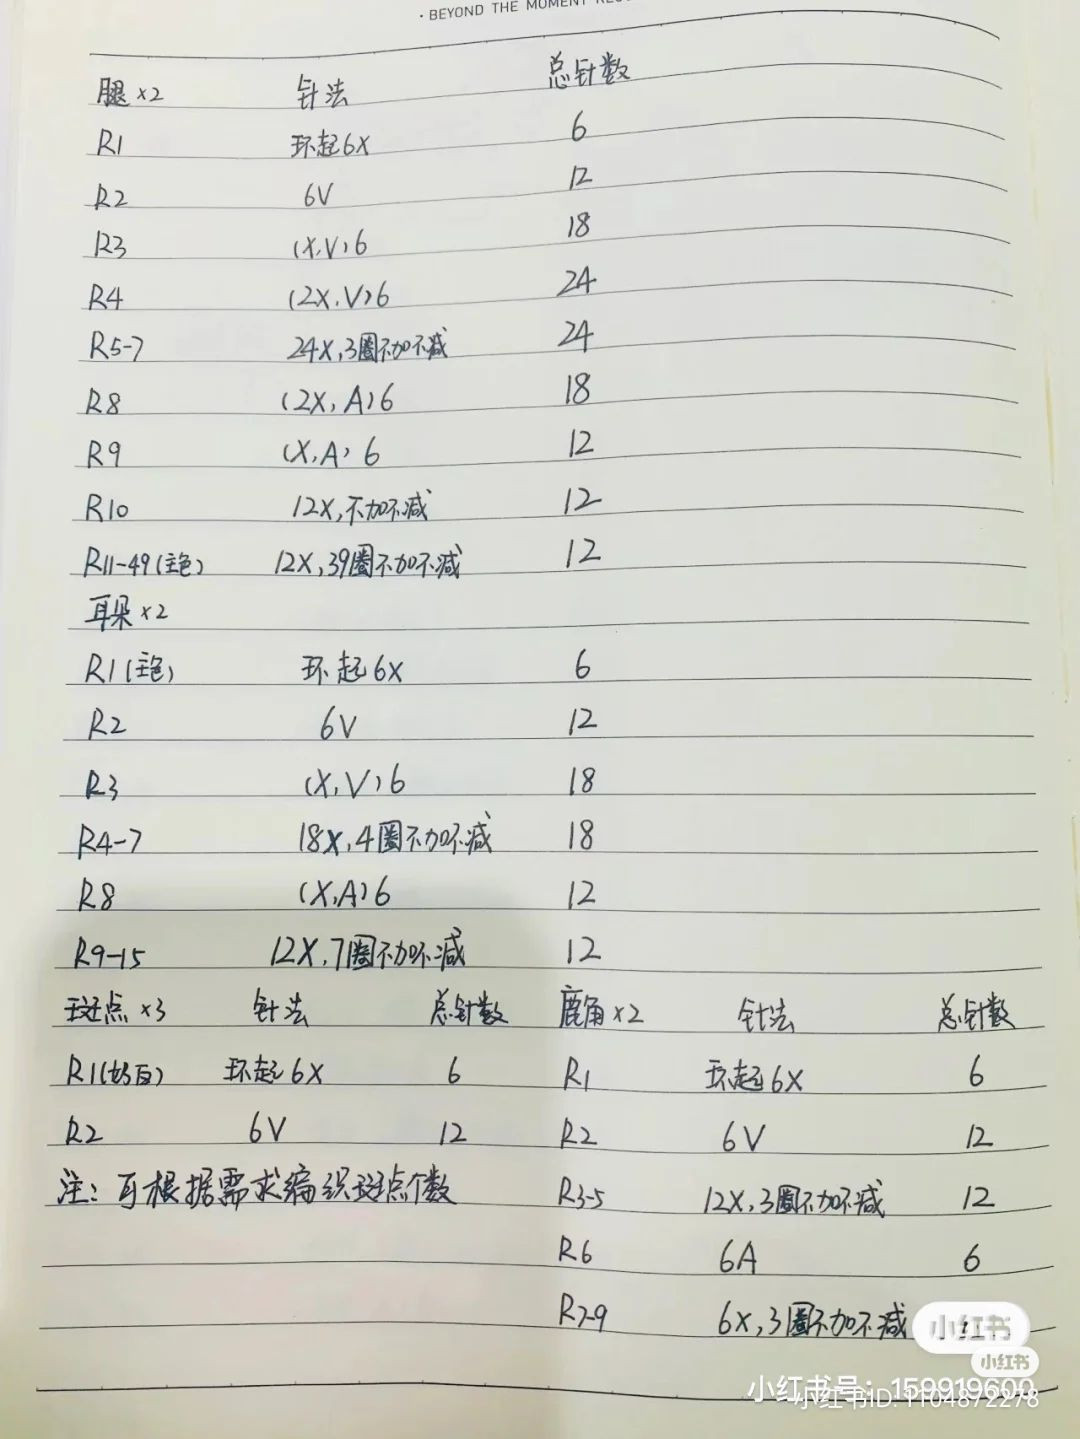 · BEYOND THE MOMENT
腿×2 针法 总针数
R1 环起6X 6
R2 6V 12
R3 (X,V)6 18
R4 (2X,V)6 24
R5-7 24X,3圈不加不减 24
R8 (2X,A)6 18
R9 (X,A)6 12
R10 12X,不加不减 12
R11-49(主色) 12X,39圈不加不减 12
耳朵×2
R1(主色) 环起6X 6
R2 6V 12
R3 (X,V)6 18
R4-7 18X,4圈不加不减 18
R8 (X,A)6 12
R9-15 12X,7圈不加不减 12
斑点×3 针法 总针数 鹿角×2 针法 总针数
R1(奶白) 环起6X 6 R1 环起6X 6
R2 6V 12 R2 6V 12
注:可根据需求编织斑点个数 R3-5 12X,3圈不加不减 12
R6 6A 6
R7-9 6X,3圈不加不减
小红书
小红书
小红书号:159919600
小红书ID: 1104872278